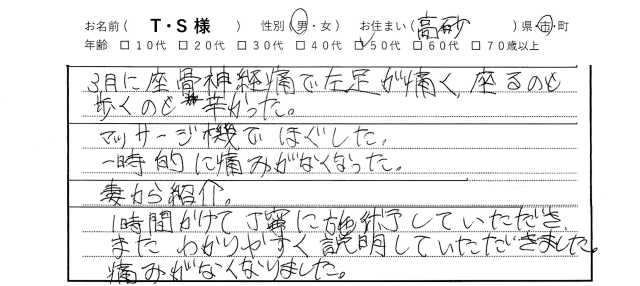 お名前（ T・S様 ） 性別（男・女） お住まい（ 高砂 ）県・市・町
年齢 □10代 □20代 □30代 □40代 ☑50代 □60代 □70歳以上
3月に座骨神経痛で左足が痛く、座るのも
歩くのも辛かった。
マッサージ機でほぐした。
一時的に痛みがなくなった。
妻から紹介。
1時間かけて丁寧に施術していただき、
また わかりやすく説明していただきました。
痛みがなくなりました。